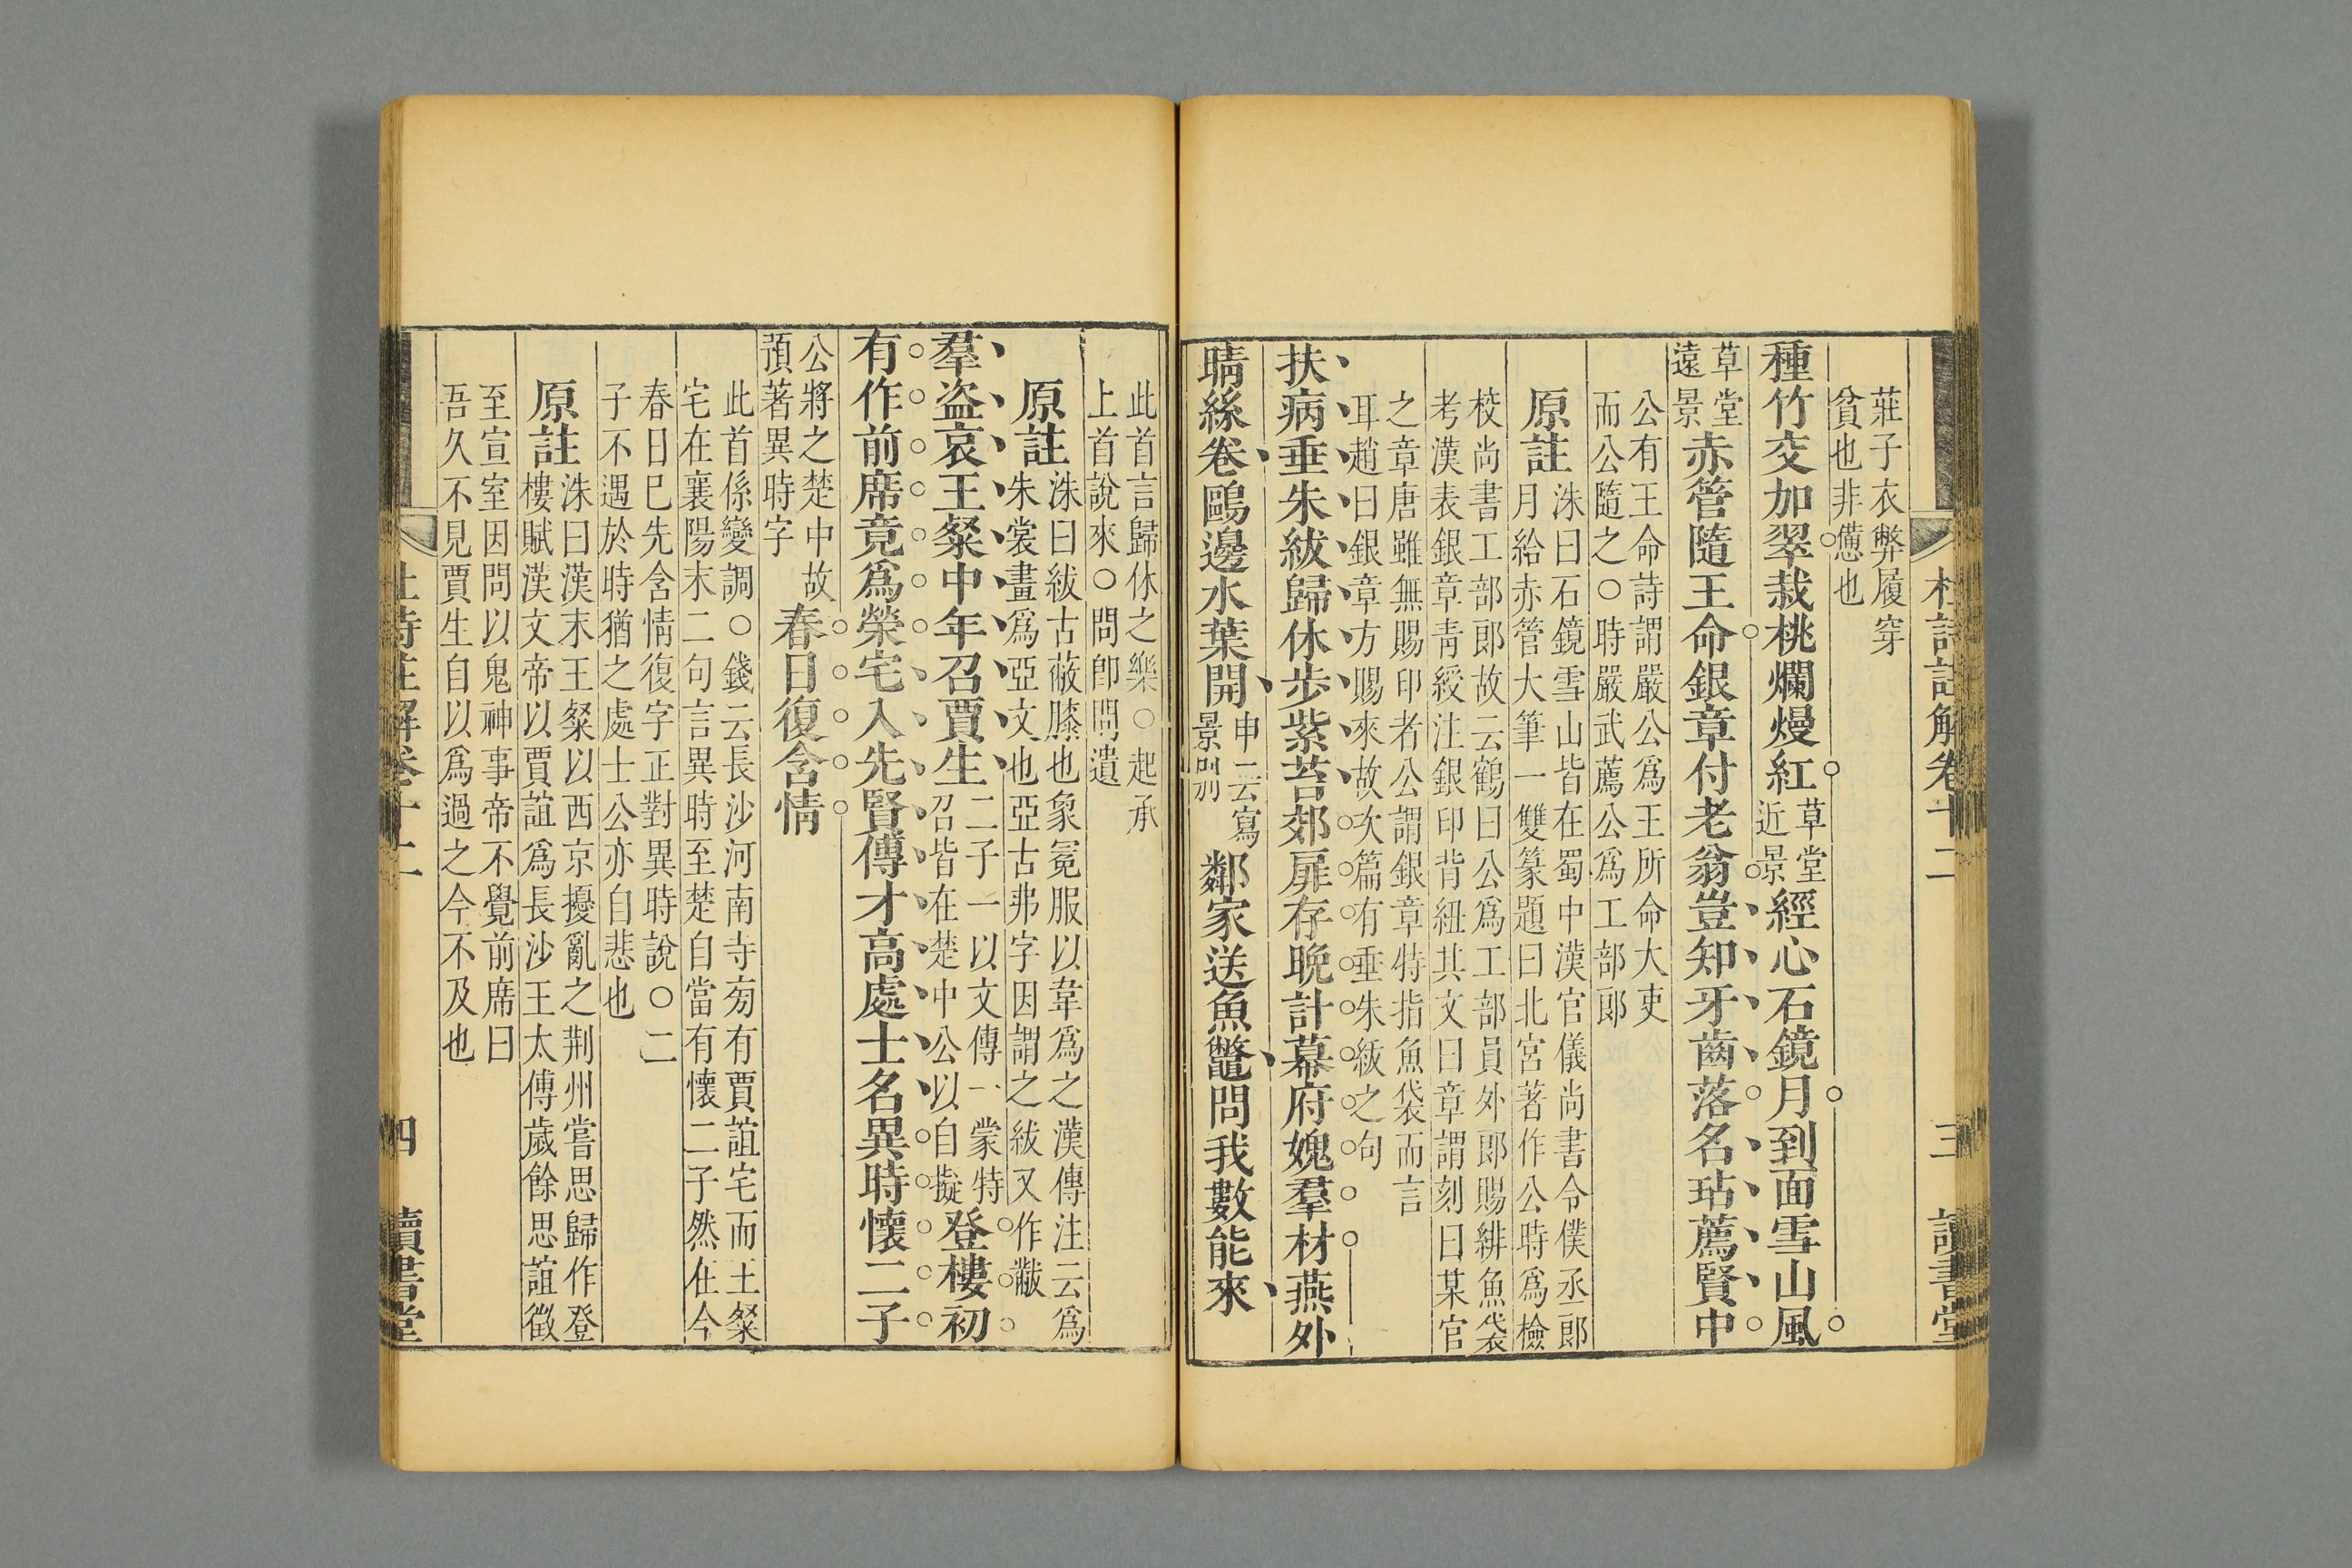 杜詩註解卷十二 三 讀書堂
莊子衣弊履穿
貧也非憊也
種竹交加翠栽桃爛熳紅草堂近景經心石鏡月到面雪山風
草堂遠景赤管隨王命銀章付老翁豈知牙齒落名玷薦賢中
公有王命詩謂嚴公爲王所命大吏
而公隨之○時嚴武薦公爲工部郎
原註洙曰石鏡雪山皆在蜀中漢官儀尚書令僕丞郎
月給赤管大筆一雙篆題曰北宮著作公時爲檢
校尚書工部郎故云鶴曰公爲工部員外郎賜緋魚袋
考漢表銀章青綬注銀印背紐其文曰章謂刻曰某官
之章唐雖無賜印者公謂銀章特指魚袋而言
耳趙曰銀章方賜來故次篇有垂朱紱之句
扶病垂朱紱歸休步紫苔郊扉存晚計幕府媿羣材燕外
晴絲卷鷗邊水葉開申云寫景明別鄰家送魚鼈問我數能來
此首言歸休之樂○起承
上首說來○問卽問遺
原註洙曰紱古蔽膝也象冕服以韋爲之漢傳注云爲
朱裳畫爲亞文也亞古弗字因謂之紱又作黻
羣盜哀王粲中年召賈生二子一以文傳一蒙特召皆在楚中公以自擬登樓初
有作前席竟爲榮宅入先賢傳才高處士名異時懷二子
公將之楚中故預著異時字春日復含情
此首係變調○錢云長沙河南寺旁有賈誼宅而王粲
宅在襄陽末二句言異時至楚自當有懷二子然在今
春日巳先含情復字正對異時說○二
子不遇於時猶之處士公亦自悲也
原註洙曰漢末王粲以西京擾亂之荆州嘗思歸作登
樓賦漢文帝以賈誼爲長沙王太傅歲餘思誼徵
至宣室因問以鬼神事帝不覺前席曰
吾久不見賈生自以爲過之今不及也
杜詩註解卷十二 四 讀書堂